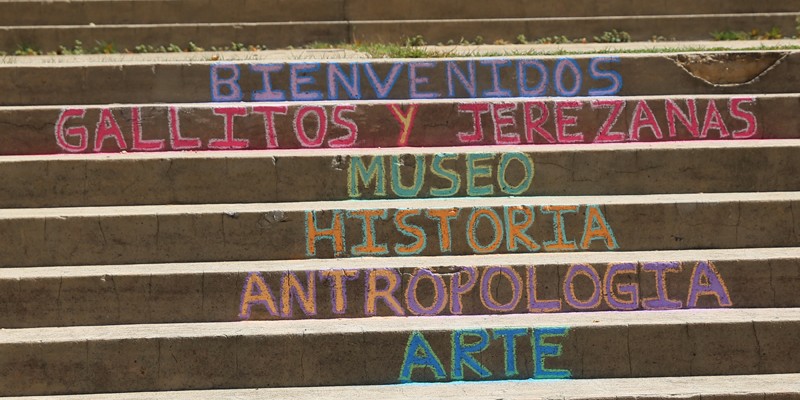 BIENVENIDOS
GALLITOS Y JEREZANAS
MUSEO
HISTORIA
ANTROPOLOGIA
ARTE